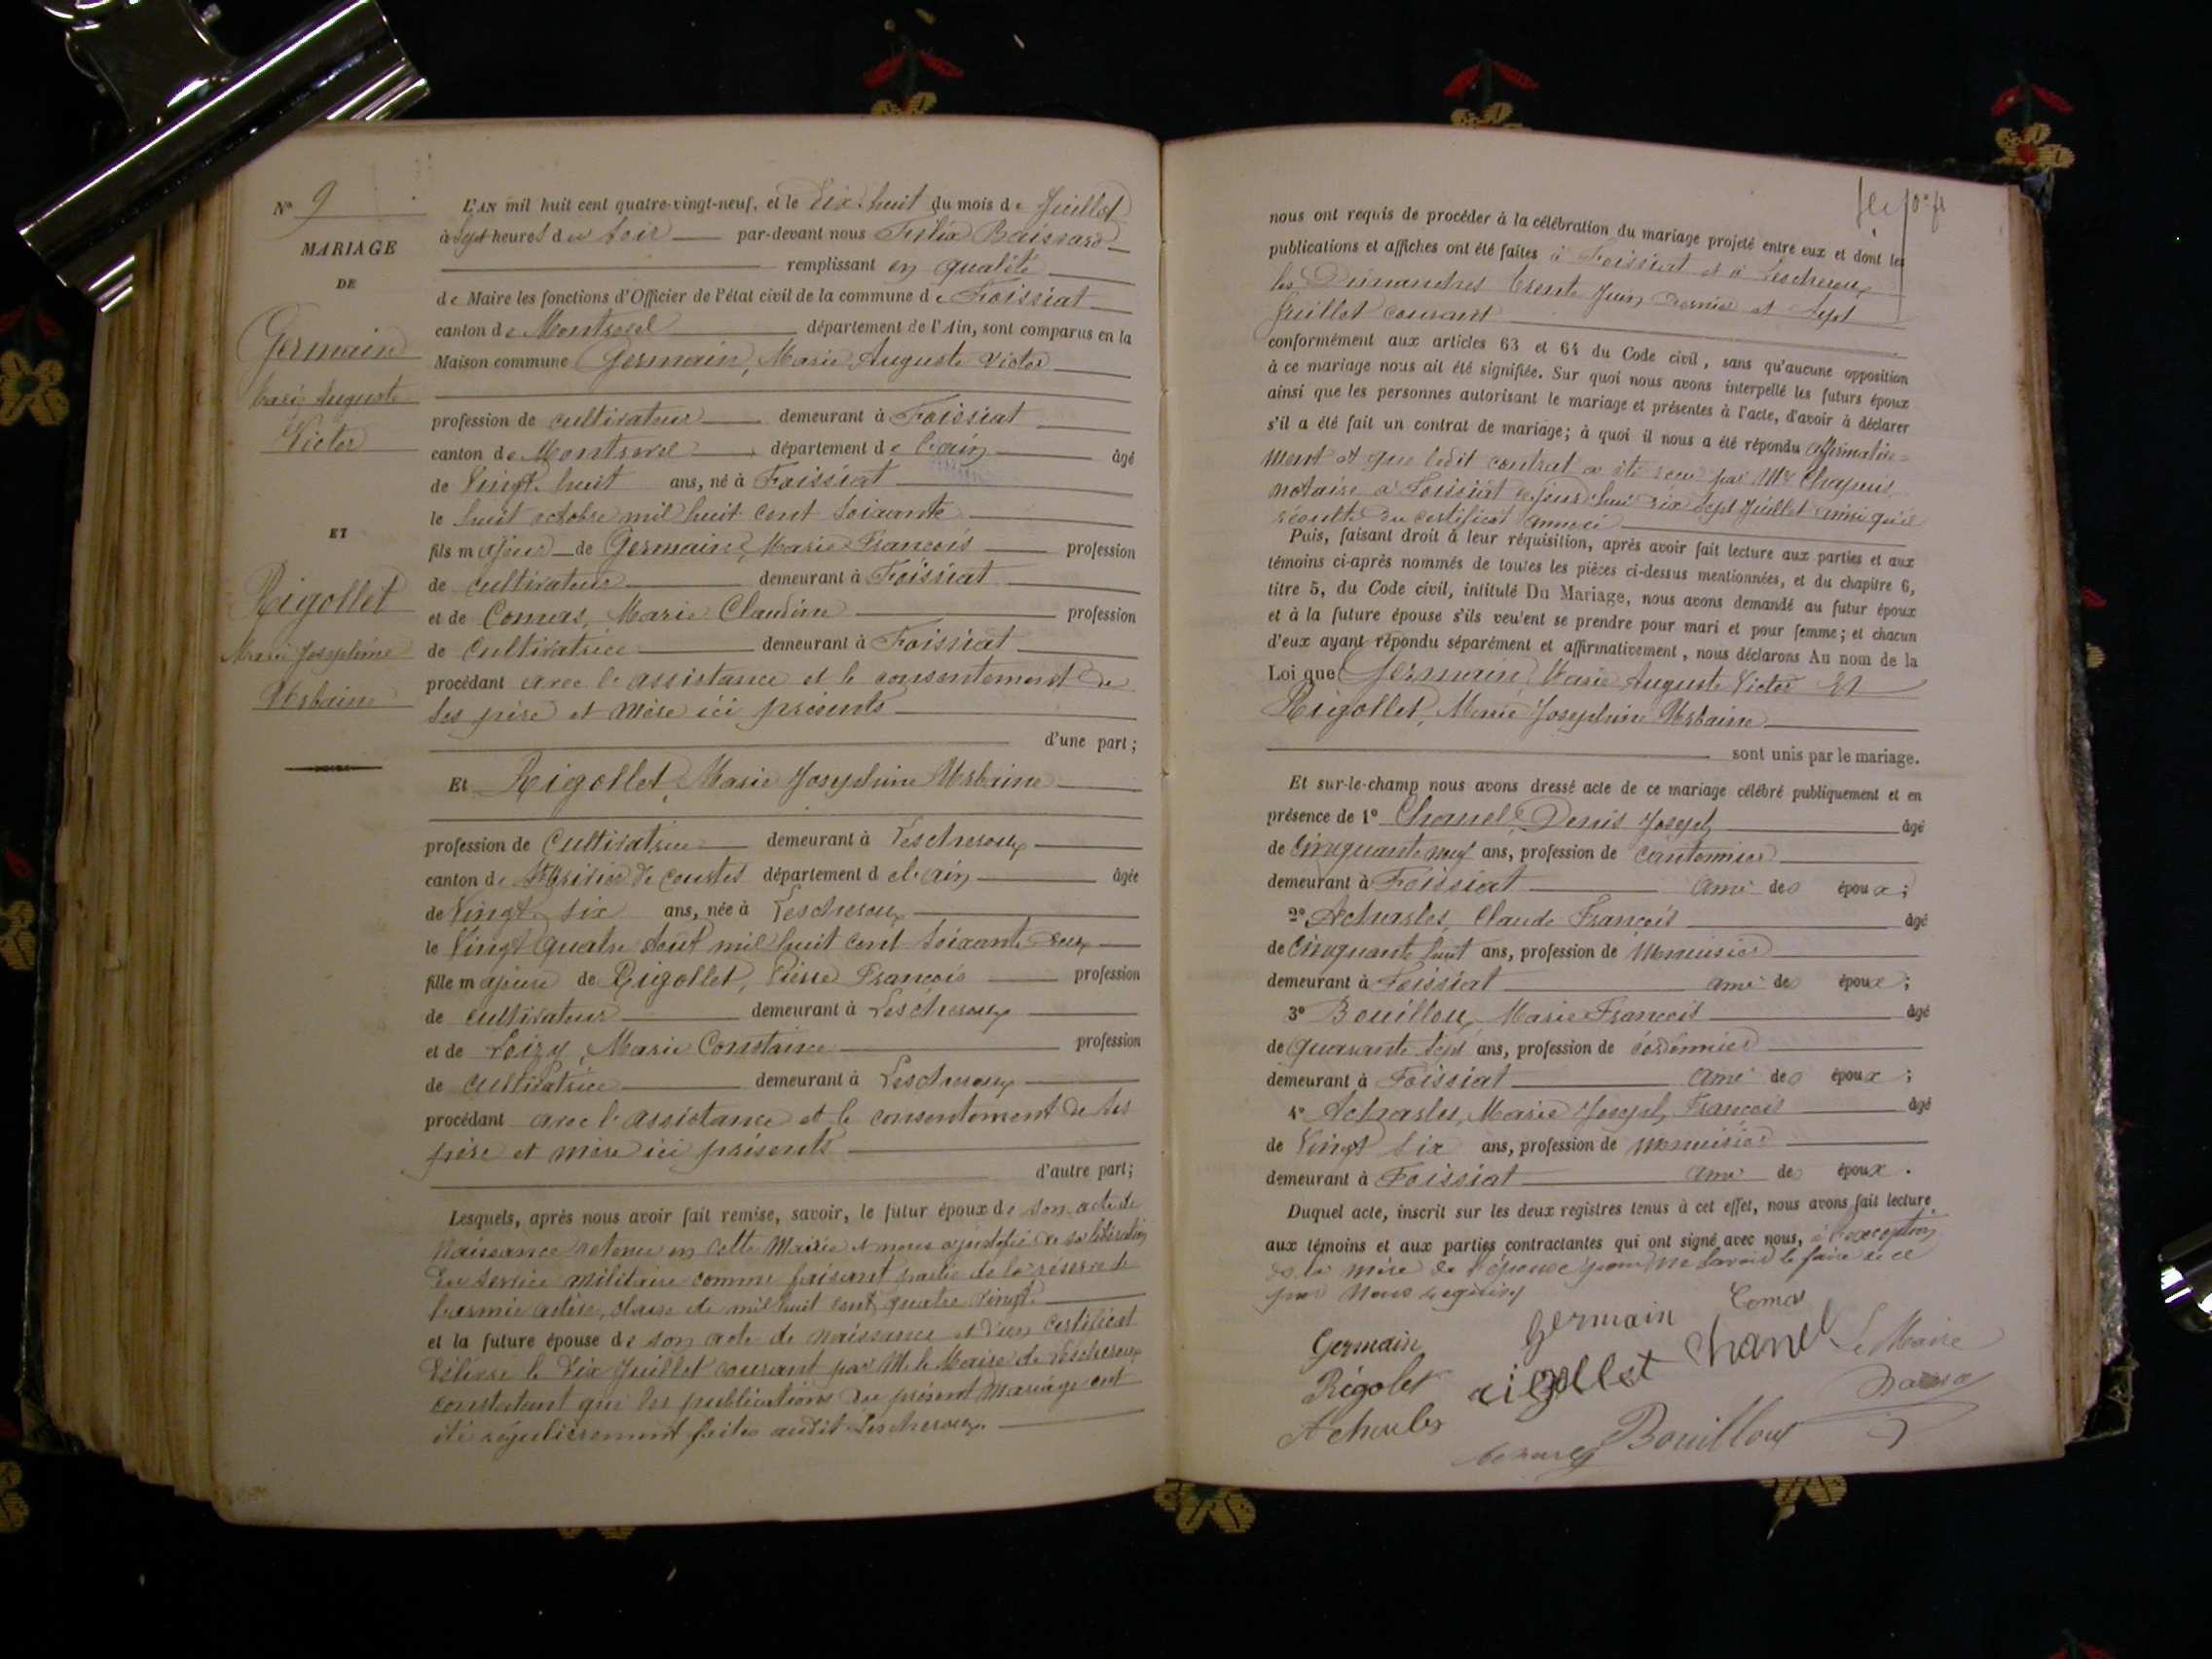 N° 9
MARIAGE
DE
Germain
Marie Auguste
Victor
ET
Rigollet
Marie Joséphine
Urbaine
L'AN mil huit cent quatre-vingt-neuf, et le Dix huit du mois de Juillet
à Sept heures du soir par-devant nous Félix
remplissant en qualité
de Maire les fonctions d'Officier de l'état civil de la commune de Foissiat
canton de Montrevel département de l'Ain, sont comparus en la
Maison commune Germain, Marie Auguste Victor
profession de cultivateur demeurant à Foissiat
canton de Montrevel département de l'ain âgé
de Vingt huit ans, né à Foissiat
le huit octobre mil huit cent soixante
fils majeur de Germain, Marie François profession
de cultivateur demeurant à Foissiat
et de Comas, Marie Claudine profession
de Cultivatrice demeurant à Foissiat
procédant avec l'assistance et le consentement de
ses père et mère ici présents
d'une part;
Et Rigollet, Marie Joséphine Urbaine
profession de Cultivatrice demeurant à Lescheroux
canton de St Trivier de courtes département de l'ain âgée
de Vingt six ans, née à Lescheroux
le Vingt quatre Août mil huit cent soixante deux
fille majeure de Rigollet, Pierre François profession
de cultivateur demeurant à Lescheroux
et de Loizy, Marie Constance profession
de cultivatrice demeurant à Lescheroux
procédant avec l'assistance et le consentement de ses
père et mère ici présents
d'autre part;
Lesquels, après nous avoir fait remise, savoir, le futur époux de son acte de
naissance retenu en cette Mairie et nous a justifié de sa libération
du service militaire comme faisant partie de la réserve de
l'armée active, classe de mil huit cent quatre vingt
et la future épouse de son acte de naissance et d'un certificat
délivré le Dix Juillet courant par M. le Maire de Lescheroux
constatant que les publications du présent mariage ont
été régulièrement faites audit Lescheroux.
nous ont requis de procéder à la célébration du mariage projeté entre eux et dont les
publications et affiches ont été faites à Foissiat et à Lescheroux
les Dimanches trente Juin dernier et sept
Juillet courant
conformément aux articles 63 et 64 du Code civil, sans qu'aucune opposition
à ce mariage nous ait été signifiée. Sur quoi nous avons interpellé les futurs époux
ainsi que les personnes autorisant le mariage et présentes à l'acte, d'avoir à déclarer
s'il a été fait un contrat de mariage; à quoi il nous a été répondu affirmative=
ment et que ledit contrat a été reçu par Me Chapuis
notaire à Foissiat dix sept Juillet ainsi qu'il
résulte du certificat annexé
Puis, faisant droit à leur réquisition, après avoir fait lecture aux parties et aux
témoins ci-après nommés de toutes les pièces ci-dessus mentionnées, et du chapitre 6,
titre 5, du Code civil, intitulé Du Mariage, nous avons demandé au futur époux
et à la future épouse s'ils veulent se prendre pour mari et pour femme; et chacun
d'eux ayant répondu séparément et affirmativement, nous déclarons Au nom de la
Loi que Germain Marie Auguste Victor Et
Rigollet, Marie Joséphine Urbaine
sont unis par le mariage.
Et sur-le-champ nous avons dressé acte de ce mariage célébré publiquement et en
présence de 1° Chanel, Denis Joseph âgé
de Cinquante neuf ans, profession de cantonnier
demeurant à Foissiat ami des époux;
2° Acharles, Claude François âgé
de Cinquante huit ans, profession de Menuisier
demeurant à Foissiat ami des époux;
3° Bouilloux, Marie François âgé
de quarante sept ans, profession de cordonnier
demeurant à Foissiat ami des époux;
4° Acharles, Marie Joseph François âgé
de Vingt six ans, profession de menuisier
demeurant à Foissiat ami des époux.
Duquel acte, inscrit sur les deux registres tenus à cet effet, nous avons fait lecture
aux témoins et aux parties contractantes qui ont signé avec nous, à l'exception
de la mère de l'épouse pour ne savoir le faire de ce
par nous requise
Germain Germain Comas
Rigolet rigollet Chanel Le Maire
Acharles Bouilloux